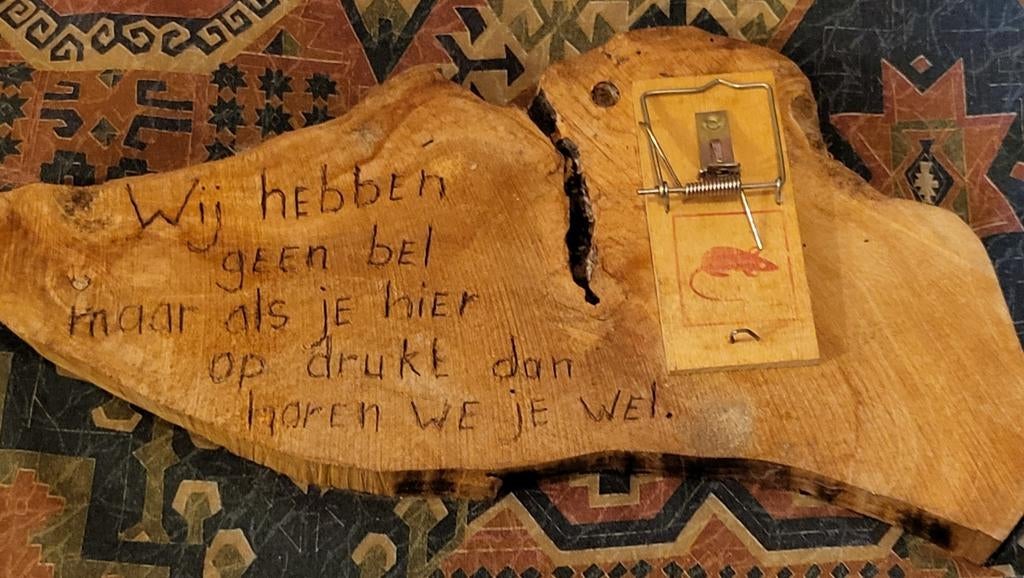 Wij hebben
geen bel
maar als je hier
op drukt dan
horen we je wel.